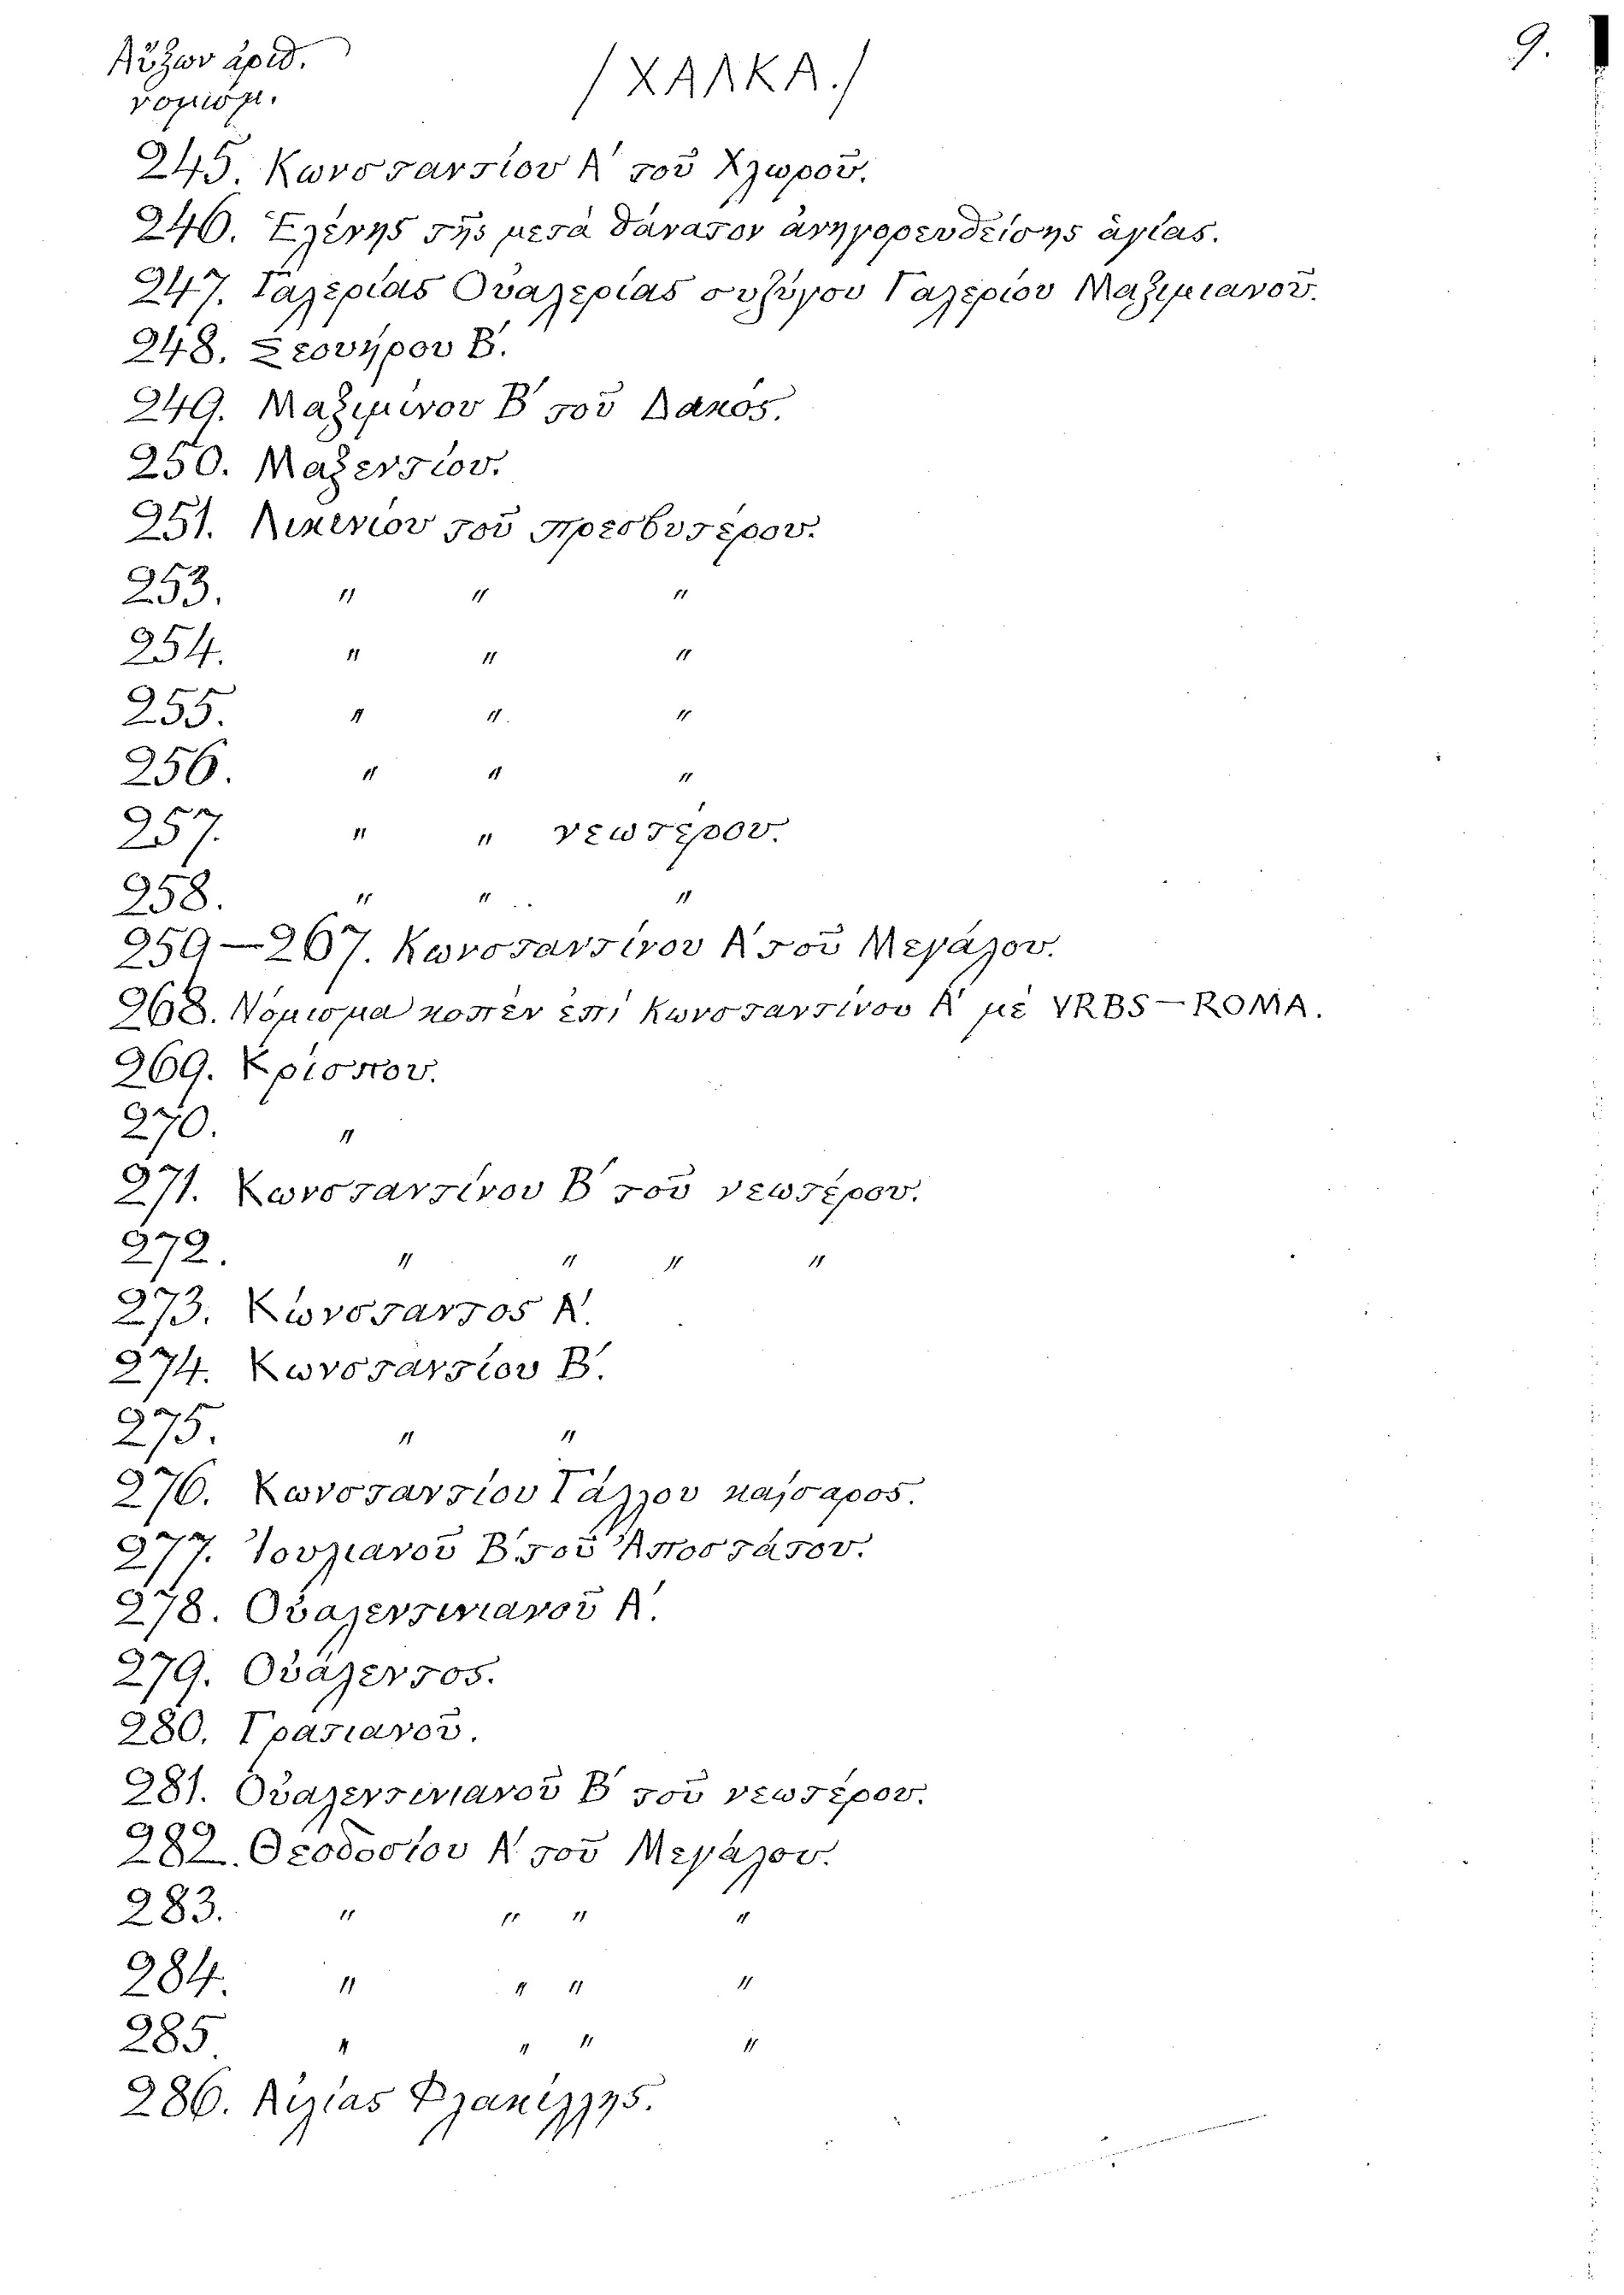 Αὔξων ἀριθ. /ΧΑΛΚΑ./ 9.
νομισμ.
245. Κωνσταντίου Α΄ τοῦ Χλωροῦ.
246. Ἑλένης τῆς μετὰ θάνατον ἀνηγορευθείσης ἁγίας.
247. Γαλερίας Οὐαλερίας συζύγου Γαλερίου Μαξιμιανοῦ.
248. Σεουήρου Β΄.
249. Μαξιμίνου Β΄ τοῦ Δακός.
250. Μαξεντίου.
251. Λικινίου τοῦ πρεσβυτέρου.
253. " " "
254. " " "
255. " " "
256. " " "
257. " " νεωτέρου.
258. " " "
259–267. Κωνσταντίνου Α΄ τοῦ Μεγάλου.
268. Νόμισμα κοπὲν ἐπὶ Κωνσταντίνου Α΄ μὲ VRBS–ROMA.
269. Κρίσπου.
270. "
271. Κωνσταντίνου Β΄ τοῦ νεωτέρου.
272. " " " "
273. Κώνσταντος Α΄.
274. Κωνσταντίου Β΄.
275. " "
276. Κωνσταντίου Γάλλου καίσαρος.
277. Ἰουλιανοῦ Β΄ τοῦ Ἀποστάτου.
278. Οὐαλεντινιανοῦ Α΄.
279. Οὐάλεντος.
280. Γρατιανοῦ.
281. Οὐαλεντινιανοῦ Β΄ τοῦ νεωτέρου.
282. Θεοδοσίου Α΄ τοῦ Μεγάλου.
283. " " " "
284. " " " "
285 " " " "
286. Αἰλίας Φλακίλλης.